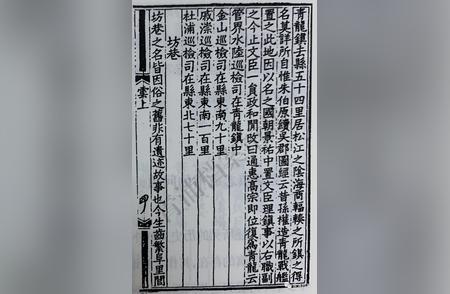 青龍鎮去縣五十四里居松江之陰海商輻輳之所鎮之得
名莫詳所自惟朱伯原續吳郡圖經云昔孫權造青龍戰艦
置之此地因以名之國朝景祐中置文臣理鎮事以右職副
之今止文臣一員政和間改曰通惠高宗即位復為青龍云
管界水陸巡檢司在青龍鎮中
金山巡檢司在縣東南九十里
戚漴巡檢司在縣東南一百里
杜浦巡檢司在縣東北七十里
坊巷
坊巷之名皆因俗之舊非有遺迹故事也今生齒繁阜里閭
雲上